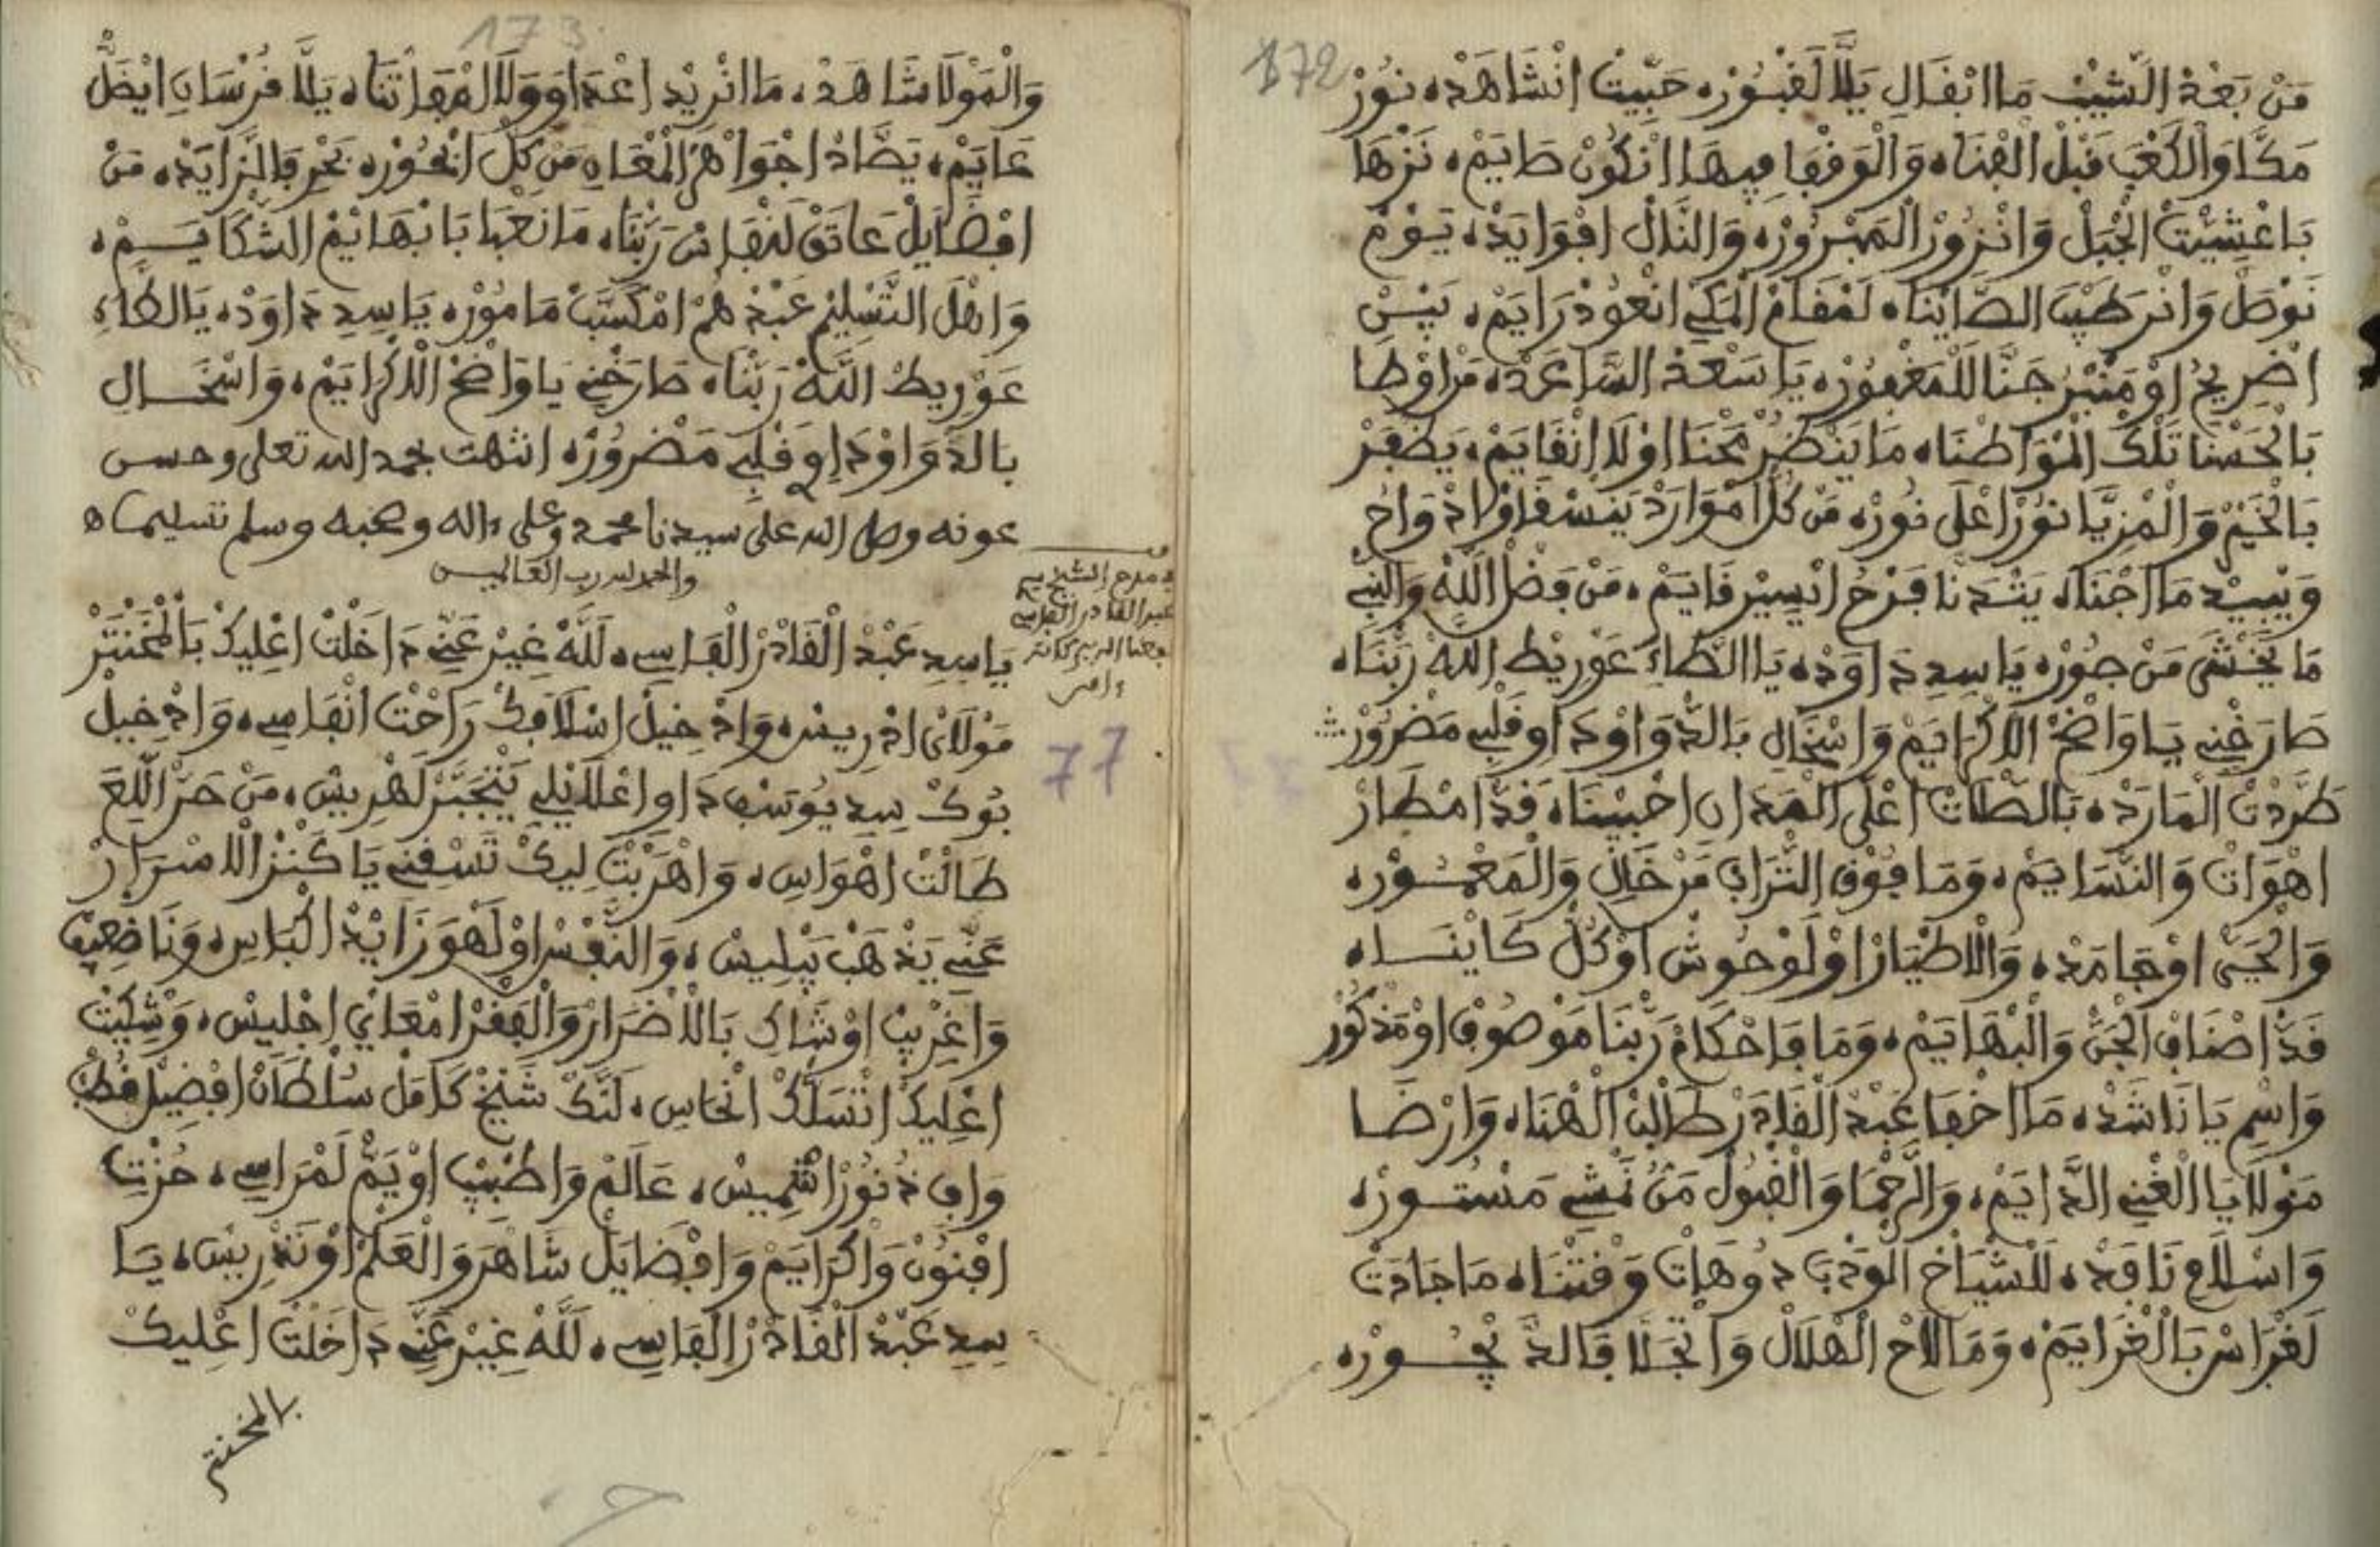 172
مَنْ بَعْدْ الشَّيْبْ مَا ابْقَالِ يَلَّا لَقْبُورْ، حَبِّيتْ انْشَاهَدْ، نُورْ
مَكَّا وَالْكَعْبَ قَبْلْ الْفْنَا، وَالْوَقْفَا فِيهَا انْكُونْ صَايَمْ، نَزْهَا
بَاعْشِيِّتْ الْجْبَلْ وَانْزُورْ الْمَبْرُورْ، وَالنَّالْ افْوَايَدْ، يَوْمْ
نَوْصَلْ وَانْرَطَّبْ الصَّايْنَا، لَمْقَامْ الْمَكِّي انْعُودْ رَايَمْ، بَيْنِ
اضْرِيحُ اوْ مَنْبَرُ جَنَّا لَلْمَغْفُورْ، يَا سَعْدْ السَّاعَدْ، مَنْ اوْطَا
بَالْحَسْنَا تَلْكْ الْمْوَاطْنَا، مَا يَنْضُرْ مَحْنَا اوْلَا انْقَايَمْ، يَظْفَرْ
بَالْخَيْرْ وَالْمْزِيَّا نُورْ اعْلَى نُورْ، مَنْ كُلّْ امْوَارَدْ يَنْسْقَاوْ اذْوَاحْ
وَيْبِيدْ مَا اجْنَا، يَنْشَدْنَا فَرْحُ انْيِسِيرْ قَايَمْ، مَنْ فَضْلْ اللَّهْ وَالنّْبِي
مَا يَخْشَى مَنْ جُورْ، يَا سِيدِ دَاوَدْ، يَا الطَّاءِ عَوْرِيطْ اللَّهْ رَبَّنَا،
صَارَخْنِي يَا وَاضَحْ الَاكْرَايَمْ وَاسْخَالِ بَالدّْوَا وْدَاوِ قَلْبِي مَضْرُورْ
طَرَّدْتْ الْمَارَدْ، بَالصّْلَاتْ اعْلَى الْعَدْنَانْ احْبِيبْنَا، قَدّْ امْطَارْ
اهْوَاتْ وَالنّْسَايَمْ، وَمَا فُوقْ التّْرَابْ مَنْ خَالِ وَالْمَعْمُورْ،
وَالْحَيّْ اوْجَامَدْ، وَالَاطْيَارْ اوْلَوْحُوشْ اوْكُلّْ كَايْنَا،
قَدّْ اصْنَافْ الْجَنّْ وَالْبْهَايَمْ، وَمَا فَاحْكَامْ رَبَّنَا مَوْصُوفْ اوْمَذْكُورْ
وَاسْمِ يَا نَاشَدْ، مَا اخْفَا عَبْدْ الْقَادَرْ طَالْبْ الْهْنَا، وَارْضَا
مَوْلَايَا الْغْنِي الدَّايَمْ، وَالرَّحْمَا وَالْقْبُولْ مَنْ نَمْشِي مَسْتُورْ،
وَاسْلَامِ نَافَدْ، لَلَشْيَاخْ الْوَدْبَ دُوهَاتْ وَقْتْنَا، مَا جَادَتْ
لَغْرَاسْ بَالْغْرَايَمْ، وَمَا لَاحْ الْهْلَالْ وَاتْجَلَّا فَالدّْيْجُورْ،
173
وَالْمَوْلَا شَاهَدْ، مَا انْرِيدْ اعْدَاوَ وَلَا الْمْفَاتْنَا، يَلَّا فُرْسَانِ ايْضَلّْ
عَايَمْ، يَصَّادْ اجْوَاهَرْ الْمْعَانِ مَنْ كُلّْ ابْحُورْ، بَحْرِ فَالزَّايَدْ، مَنْ
افْضَايَلْ عَاتَقْ لَنْفَاسْ رَبَّنَا، مَا نَعْبَا بَابْهَايَمْ الشّْكَايَمْ،
وَاهْلْ التَّسْلِيمْ عَبْدْهُمْ امْكَسَّبْ مَامُورْ، يَا سِيدِ دَاوَدْ، يَا الطَّاءِ
عَوْرِيطْ اللَّهْ رَبَّنَا، صَارَخْنِي يَا وَاضَحْ الَاكْرَايَمْ، وَاسْخَالِ
بَالدّْوَا وْدَاوِ قَلْبِي مَضْرُورْ، انتهت بحمد الله تعلى وحسن
عونه وصلى الله على سيدنا محمد وعلى ءاله وصحبه وسلم تسليما ه
والحمد لله رب العالمين
مدح الشيخ
عبد القادر الفاسي
ءامين
يَا سِيدِ عَبْدْ الْقَادَرْ الْفَاسِي، لَلَّهْ غِيرْ عَنِّي دَاخَلْتْ اعْلِيكْ بَالْمْخَنْتَرْ
مَوْلَايْ ادْرِيسْ، وَادْخِيلْ اسْلَافَكْ رَاحْتْ انْفَاسِي، وَادْخِيلْ
بُوكْ سِيدِ يُوسَفْ دَاوِ اعْلَايْلِي يَنْجَبَّرْ لَهْرِيسْ، مَنْ حَرّْ اللِّيعَ
طَالْتْ اهْوَاسِ، وَاهْرَبْتْ لِيكْ تَسْقِنِي يَا كَنْزْ الَاسْرَارْ
عَنِّي يَذْهَبْ بَبْلِيسْ، وَالنَّفْسْ اوْلَهْوَ زَايْدْ الْبَاسِ، وَنَا ضْعِيفْ
وَاغْرِيبْ اوْشَاكِ بَالَاضْرَارْ وَالْفَقْرْ امْعَايْ اجْلِيسْ، وَشْكِيتْ
اعْلِيكْ اتْسَلَّكْ انْحَاسِ، لَنَّكْ شَيْخْ كَامَلْ سُلْطَانْ افْضِيلْ قُطْبْ
وَافِ دْنُورْ اشْمِيسْ، عَالَمْ وَاطْبِيبْ اوْيَمّْ لَمْرَاسِي، حُزْتِ
افْنُونْ وَاكْرَايَمْ وَافْضَايَلْ شَاهَرْ وَالْعَلْمْ اوْتَدْرِيسْ، يَا
سِيدِ عَبْدْ الْقَادَرْ الْفَاسِي، لَلَّهْ غِيرْ عَنِّي دَاخَلْتْ اعْلِيكْ
بالمخنتر
77